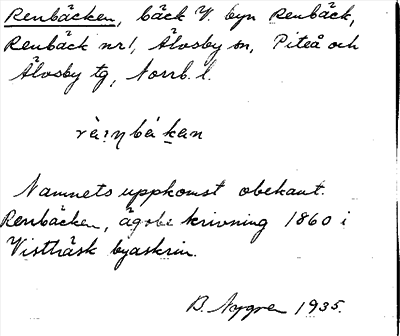 Renbäcken, bäck V. byn Renbäck,
Renbäck nr 1, Älvsby sn, Piteå och
Älvsby tg, Norrb. l.
rè:ηbà kan
Namnets uppkomst obekant.
Renbäcken, ägobeskrivning 1860 i
Vistträsk byaskrin.
B. Nygren 1935.